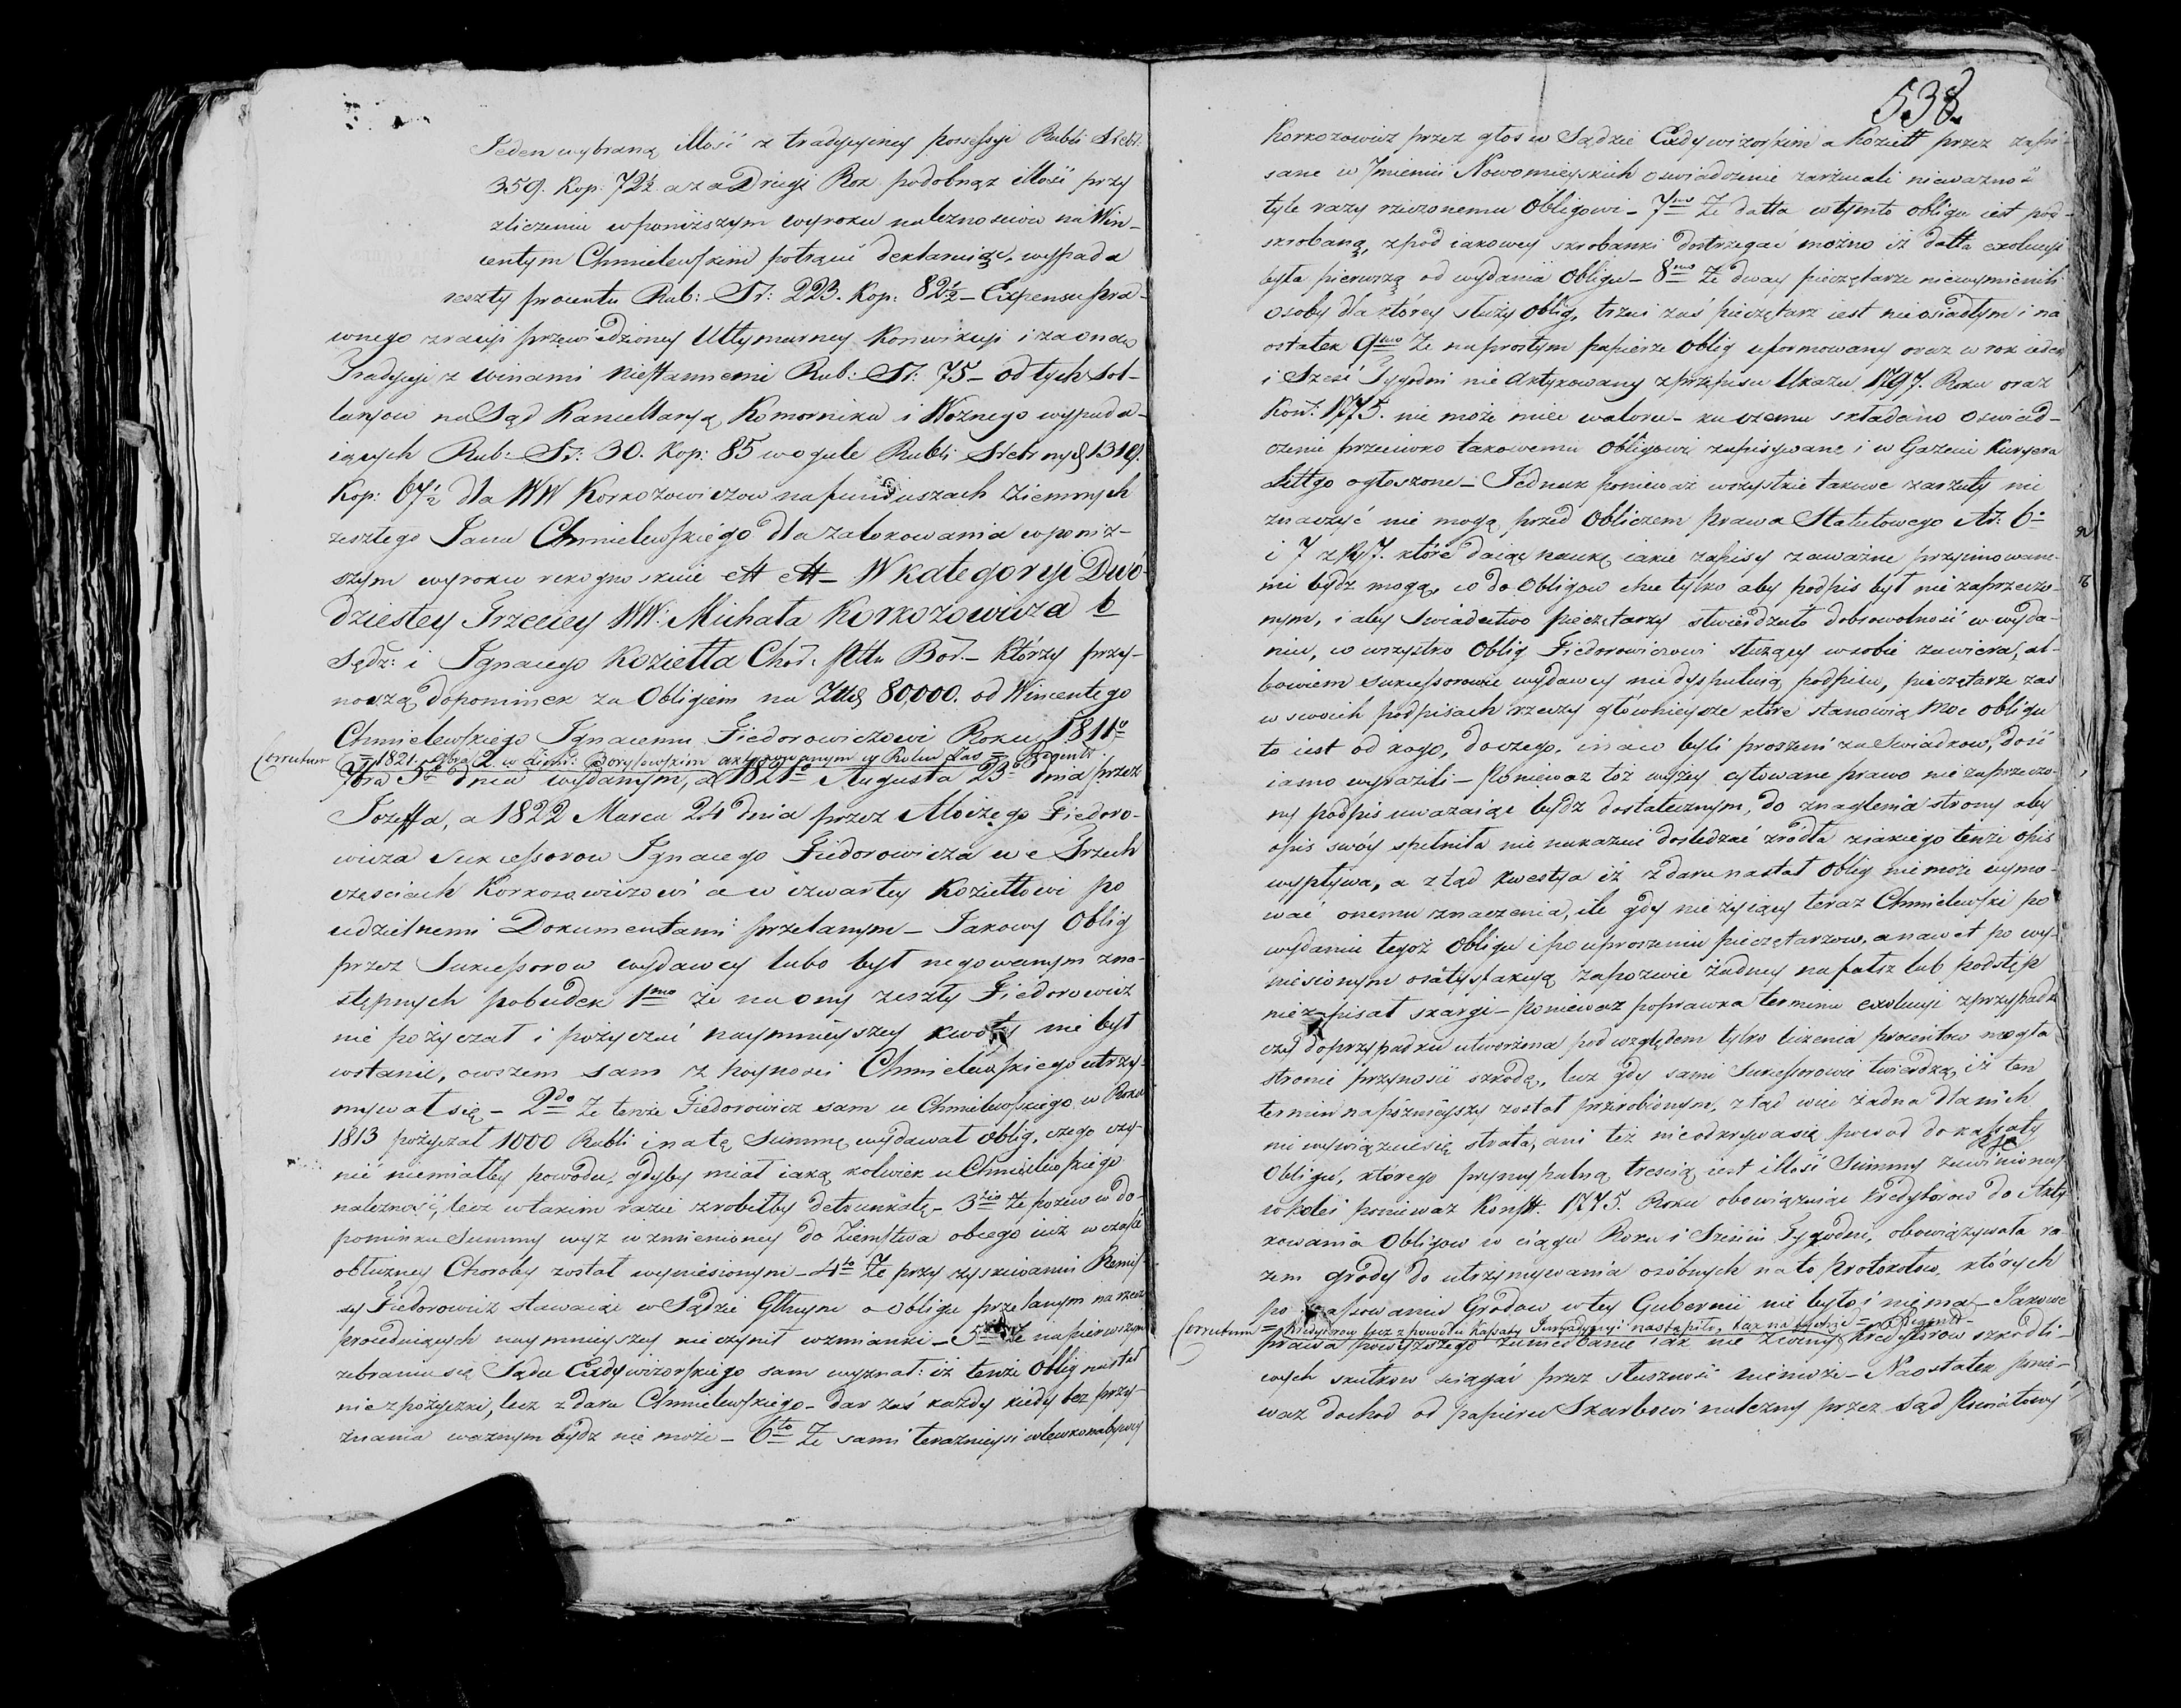 Jeden wybraną illość z tradycyiney possessyi Rubli Srebr.
359. Kop: 72½ a za Drugi Rok podobnąz illość przy
zliczeniu wponiższym wyroku należnościow na Win-
centym Chmielewskim potrącić deklaruiąc, wypada
reszty procentu Rub: Sr: 223. Kop: 82½ – Expensu pra-
wnego zracyi przewiedzioney Ultymarney Konwikcyi i za
Tradycyi z winami niestannemi Rub: Sr: 75 – od tych Sol-
laryow na Sąd Kancellaryą Komornika i Woznego wypada-
iących Rub: Sr: 30. Kop: 85 wogule Rubli Srebrnych 1319.
Kop: 67½ dla WW Korkozowiczow na funduszach ziemnych
zeszłego Jana Chmielewskiego dla zalokowania wponiż-
szym wyroku rekognoskuie – W kategoryi Dwó-
dziestey Trzeciey WW: Michała Korkozowicza b
Sędz: i Ignacego Koziełła Chor: Pttu Bor. – Którzy przy-
noszą dopominek za Obligiem na Złłch 80,000. od Wincentego
Chmielewskiego Ignacemu Fiedorowiczowi Roku 1811o
Correctum 1821. 2. w Ziems: Borysowskim aktykowanym w Roku Zas = Regent
7bra dnia wydanym, a 1821o Augusta 23o dnia przez
Jozeffa, a 1822 Marca 24 dnia przez Aloizego Fiedoro-
wicza Sukcessorow Ignacego Fiedorowicza we Trzech
częściach Korkozowiczowi a w czwartey Koziełłowi po
udzielnemi Dokumentami przelanym – Jakowy Oblig
przez Sukcessorow wydawcy lubo był negowanym zna-
stępnych pobudek 1mo że na ony zeszły Fiedorowicz
nie pożyczał i pożyczać naymnieyszey kwoty nie był
wstanie, owszem sam z hoyności Chmielewskiego utrzy-
mywał się – 2do Że tenże Fiedorowicz sam u Chmielewskiego w Roku
1813 pożyczał 1000 Rubli i na tę Summę wydawał Oblig, czego czy-
nić niemiałby powodu, gdyby miał iaką kolwiek u Chmielewskiego
należność, lecz w takim razie zrobiłby detrunkatę – 3tio Że pozew w do-
pominku Summy wyż wzmienioney do Ziemstwa obcego iuż w czasie
obłużney Choroby został wyniesionym – 4to Że przy zyskiwaniu Remis-
sy Fiedorowicz stawaiąc w Sądzie Głłnym o Obligu przelanym na rzecz
procedniących naymnieyszey nie czynił wzmianki – 5to Że na pierwszym
zebraniu się Sądu Exdywizorskiego sam wyznał: iż tenże Oblig nastał
nie z pożyczki, lecz z daru Chmielewskiego – dar zaś każdy kiedy bez przy-
znania ważnym bydz nie może – 6to Że sami teraznieysi wlewkonabywcy
538.
Korkozowicz przez głos w Sądzie Exdywizorskim a Koziełł przez zapi-
sane w Jmieniu Nowomieyskich oswiadczenie zarzucali nieważność
tyle razy rzeczonemu Obligowi – 7mo Że datta w tymto obligu iest pod-
skrobaną, zpod iakowey skrobanki dostrzegać można iż datta exolucyi
była pierwszą od wydania Obligu – 8vo Że dway pieczętarze niewymienili
osoby dla którey służy oblig, trzeci zaś pieczętarz iest nieosiadłym i na
ostatek 9no Że na prostym papierze Oblig uformowany oraz w rok ieden
i Szesć Tygodni nie Aktykowany zprzepisu Ukazu 1797. Roku oraz
Kon: 1775. nie może mieć waloru – ku czemu składano oswiad-
czenie przeciwko takowemu Obligowi zapisywane i w Gazecie Kuryera
Littgo ogłoszone – Jednak ponieważ wszystkie takowe zarzuty nic
znaczyć nie mogą przed Obliczem prawa Statutowego Ar: 6o
i 7 z Ro 7. które daiąc naukę iakie zapisy za ważne przyimowane-
mi bydz mogą, co do Obligow chce tylko aby podpis był nie zaprzeczo-
nym, i aby swiadectwo pieczętarzy stwierdzało dobrowolność w wyda-
niu, co wszystko Oblig Fiedorowiczowi służący w sobie zawiera, al-
bowiem sukcessorowie wydawcy nie dysputuią podpisu, pieczętarze zas
w swoich podpisach rzeczy główneysze które stanowią Moc obligu
to iest od kogo, do czego, i na co byli proszeni za Swiadkow, dość
iasno wyrazili – Ponieważ toż wyżey cytowane prawo nie zaprzeczo-
ny podpis uwazaiąc bydz dostatecznym, do znaglenia strony aby
opis swóy spełniła nie nakazuie dosledzać źródła ziakiego tenże opis
wypływa, a ztąd kwestya iż z daru nastał Oblig nie może uymo-
wać onemu znaczenia, ile gdy nie zyiący teraz Chmielewski po
wydaniu tegoż Obligu i po uproszeniu pieczętarzow, a nawet po wy-
niesionym osatysfakcyą zapozwie żadney na fałsz lub podstęp
nie zapisał skargi – Ponieważ poprawka terminu exolucyi zprzypadku
czy do przypadku utworzona pod względem tylko liczenia procentow mogła
stronie przynosić szkodę, lecz gdy sami Sukcessorowie twierdzą, iż ten
termin napózniejszy został przerobionym, ztąd więc żadna dla nich
nie wywiązuie się strata, ani też nieodkrywasię powod do kassaty
Obligu, którego pryncypalną trescią iest illość Summy zawinioney
wkolei ponieważ Konstt. 1775. Roku obowiązuiąc kredytorow do Akty-
kowania Obligow w ciągu Roku i Szesciu Tygodni, obowiązywała ra-
zem grody do utrzymywania osóbnych na to Protokołow, których
po skassowaniu Grodow w tey Gubernii nie było i niema – Jakowe
Correctum = Kredytorow lecz z powodu Kassaty nastąpiło, tak na = Regent
prawa powyższego zaniedbanie iak nie Kredytorow szkodli-
wych skutkow sciągać przez słuszność niemoże – Naostatek ponie-
waż dochod od papieru Skarbowi należny przez Sąd Powiatowy